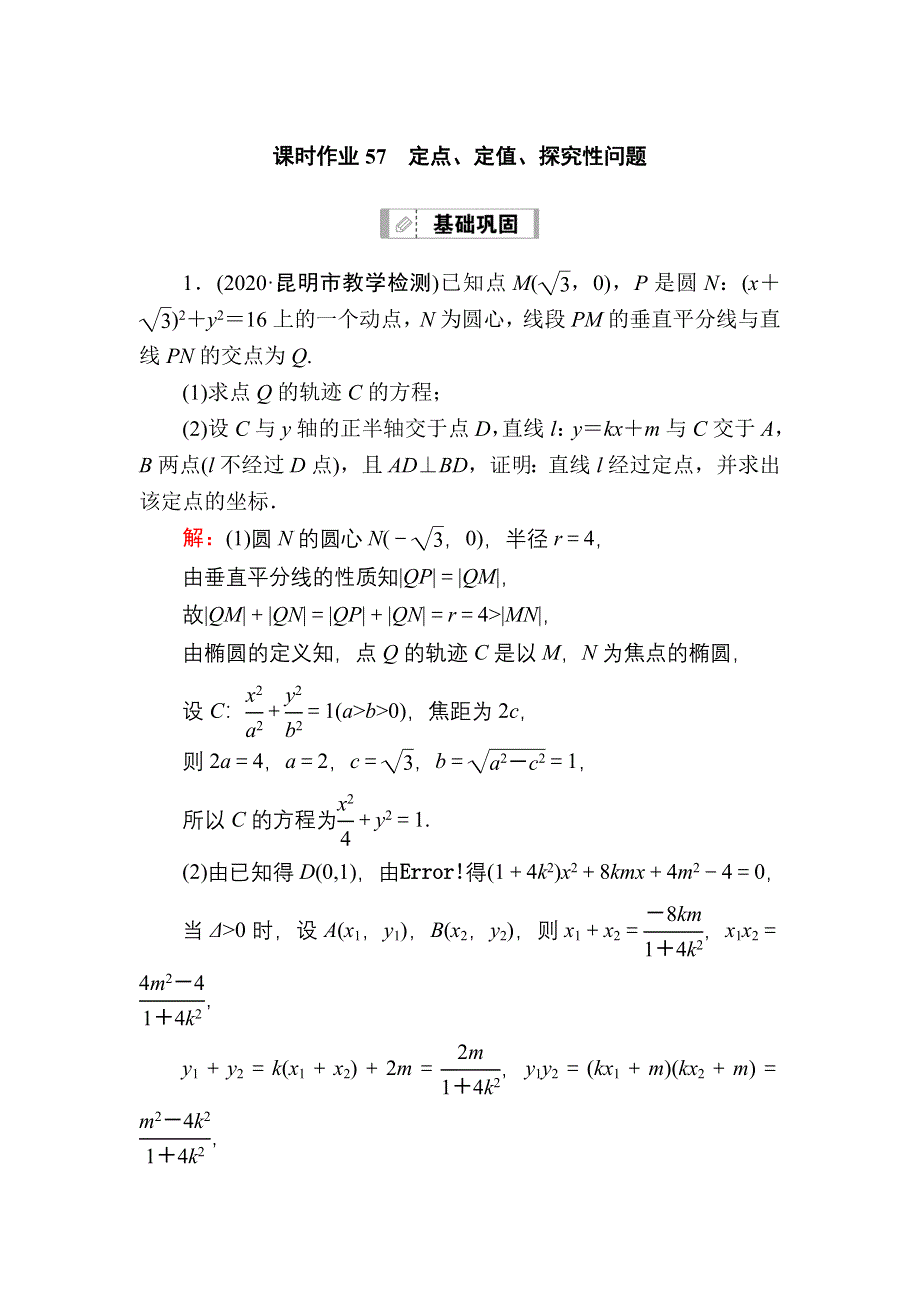 课时作业57　定点、定值、探究性问题
基础巩固
1．(2020·昆明市教学检测)已知点M(√3，0)，P是圆N：(x＋
√3)²＋y²＝16上的一个动点，N为圆心，线段PM的垂直平分线与直
线PN的交点为Q.
(1)求点Q的轨迹C的方程；
(2)设C与y轴的正半轴交于点D，直线l：y＝kx＋m与C交于A，
B两点(l不经过D点)，且AD⊥BD，证明：直线l经过定点，并求出
该定点的坐标．
解：(1)圆N的圆心N(－√3，0)，半径r＝4，
由垂直平分线的性质知|QP|＝|QM|，
故|QM|＋|QN|＝|QP|＋|QN|＝r＝4>|MN|，
由椭圆的定义知，点Q的轨迹C是以M，N为焦点的椭圆，
设C：x²/a²＋y²/b²＝1(a>b>0)，焦距为2c，
则2a＝4，a＝2，c＝√3，b＝√(a²－c²)＝1，
所以C的方程为x²/4＋y²＝1.
(2)由已知得D(0,1)，由Error!得(1＋4k²)x²＋8kmx＋4m²－4＝0，
当Δ>0时，设A(x₁，y₁)，B(x₂，y₂)，则x₁＋x₂＝－8km/1＋4k²，x₁x₂＝
4m²－4/1＋4k²，
y₁＋y₂＝k(x₁＋x₂)＋2m＝2m/1＋4k²，y₁y₂＝(kx₁＋m)(kx₂＋m)＝
m²－4k²/1＋4k²，